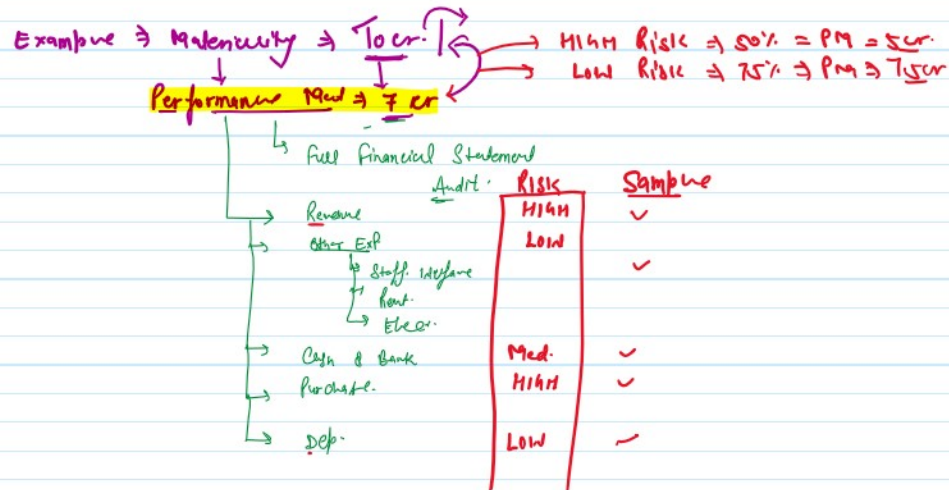 Example ⇒ Materiality ⇒ 10 cr.
HIGH Risk ⇒ 50% = PM = 5 cr.
LOW Risk ⇒ 75% ⇒ PM ⇒ 7.5 cr
Performance Mat ⇒ 7 cr
Full Financial Statement
Audit. RISK Sample
Revenue HIGH ✓
Other Exp LOW
Staff. Welfare ✓
Rent.
Elec.
Cash & Bank Med. ✓
Purchase. HIGH ✓
Dep. LOW